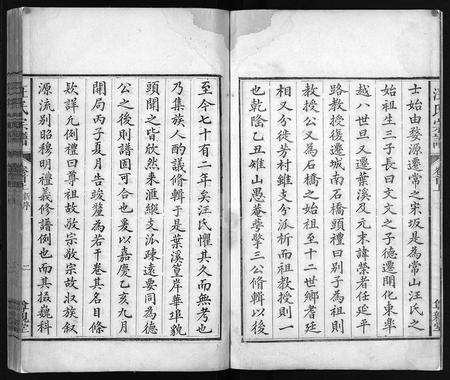 士始由婺源遷常之東坂是為常山汪氏之
始祖生三子長曰文文之子德遷開化東皋
越八世旦又遷葉溪及元末諱榮者任延平
路教授復遷城南石橋頭禮曰別子為祖則
教授公又為石橋之始祖至十二世鄉耆廷
相又分徙芳村雖支分派析而祖教授則一
也乾隆乙丑雉山愚菴夢擎三公脩輯以後
至今七十有二年矣汪氏懼其久而無考也
乃集族人酌議脩輯于是葉溪篁岸華埠貌
頭聞之皆欣然來滙縱支派疎遠要同為德
公之後則譜固可合也爰以嘉慶乙亥九月
開局丙子夏月告竣釐為若干卷其名目條
欵詳九例禮曰尊祖故敬宗敬宗故收族叙
源流別昭穆明禮義修譜例也而其掞巍科
汪氏宗譜